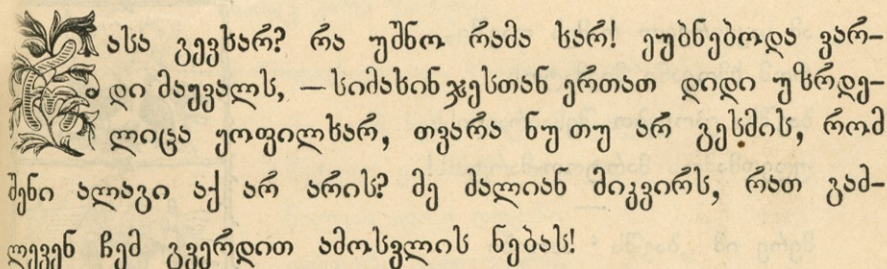 რასა გევხარ? რა უშნო რამა ხარ! ეუბნებოდა ვარ-
დი მაყვალს, — სიმახინჯესთან ერთათ დიდი უზრდე-
ლიცა ყოფილხარ, თვარა ნუ თუ არ გესმის, რომ
შენი ალაგი აქ არ არის? მე ძალიან მიკვირს, რათ გაძ-
ლევენ ჩემ გვერდით ამოსვლის ნებას!